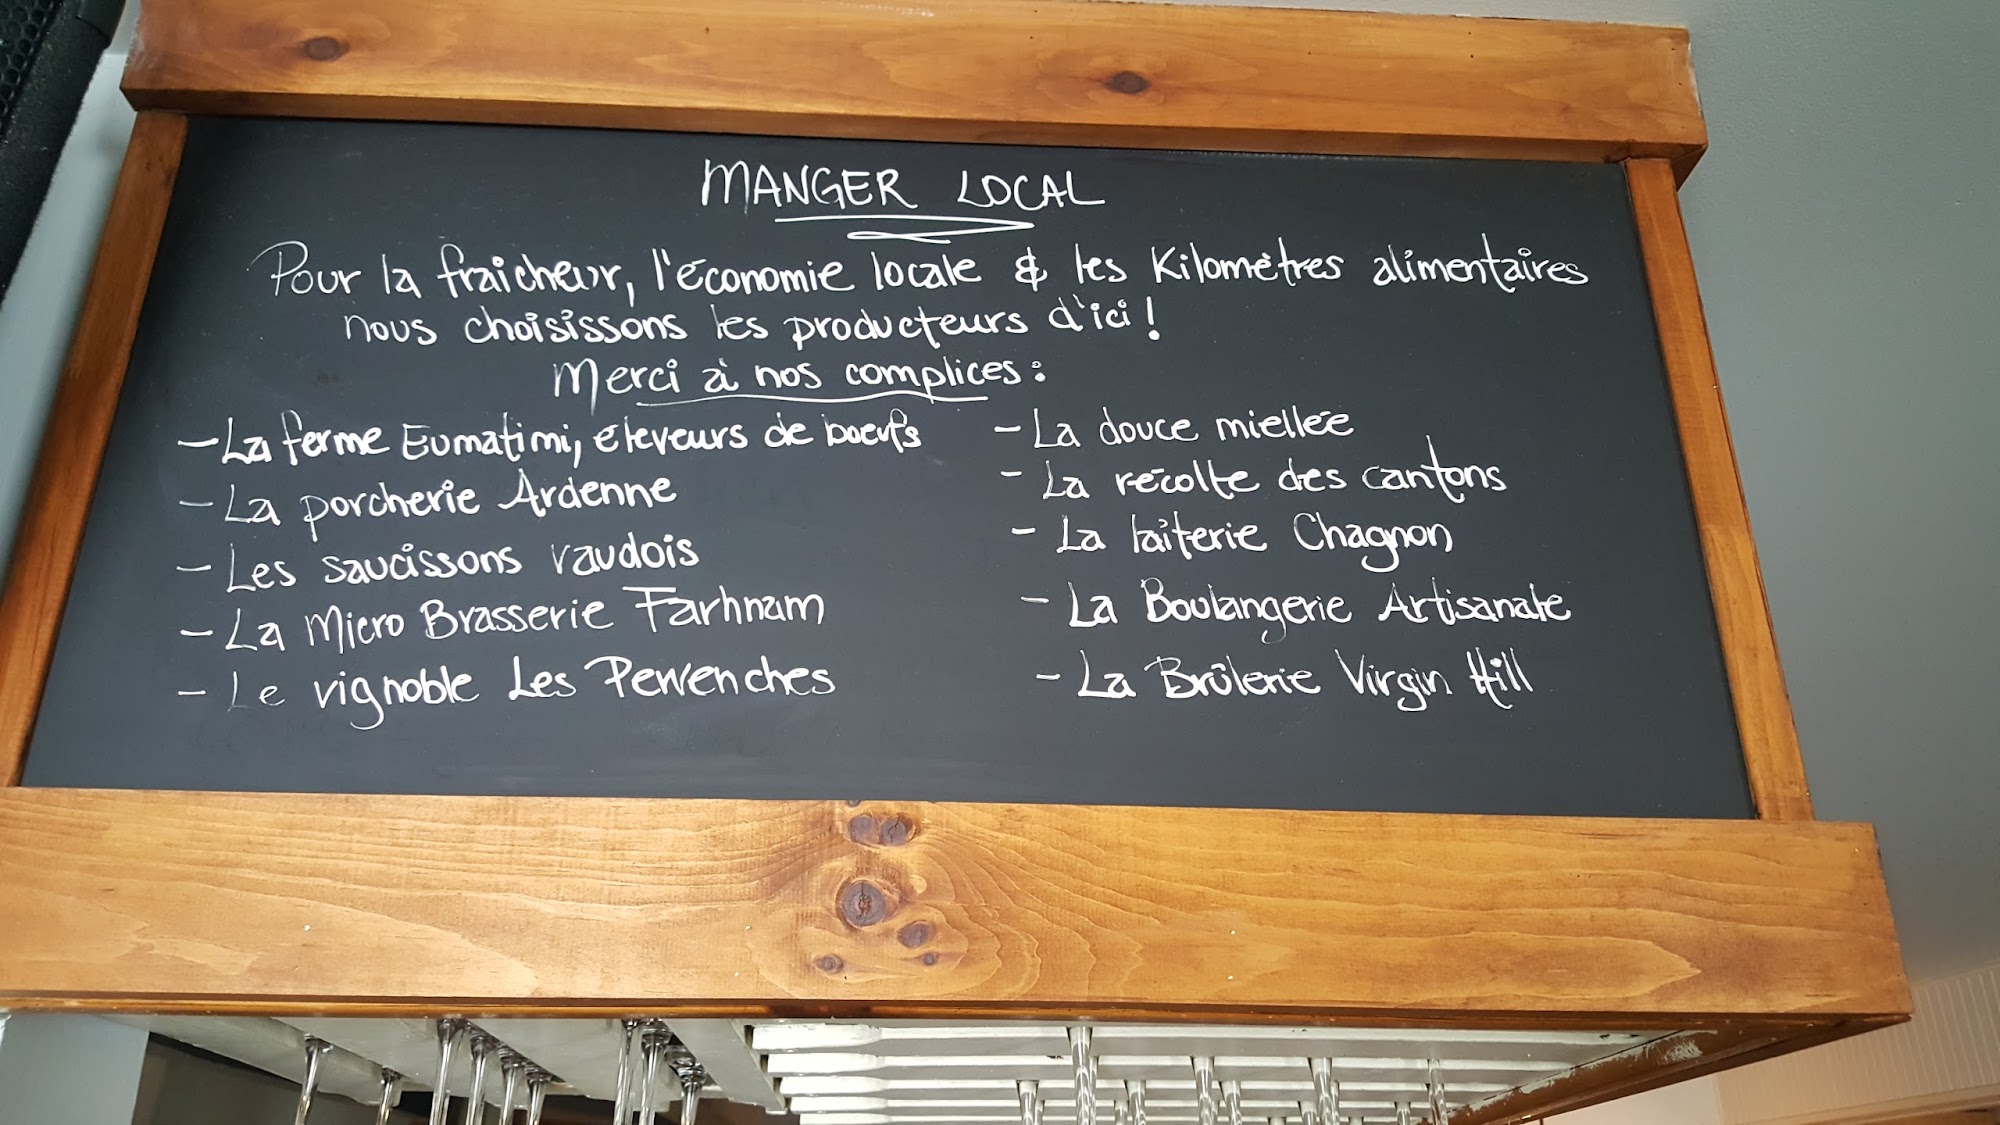 MANGER LOCAL
Pour la fraîcheur, l'économie locale & les Kilomètres alimentaires
nous choisissons les producteurs d'ici !
Merci à nos complices :
- La ferme Eumatimi, éleveurs de boeufs
- La porcherie Ardenne
- Les saucissons vaudois
- La Micro Brasserie Farhnam
- Le vignoble Les Pervenches
- La douce miellée
- La récolte des cantons
- La laiterie Chagnon
- La Boulangerie Artisanale
- La Brûlerie Virgin Hill